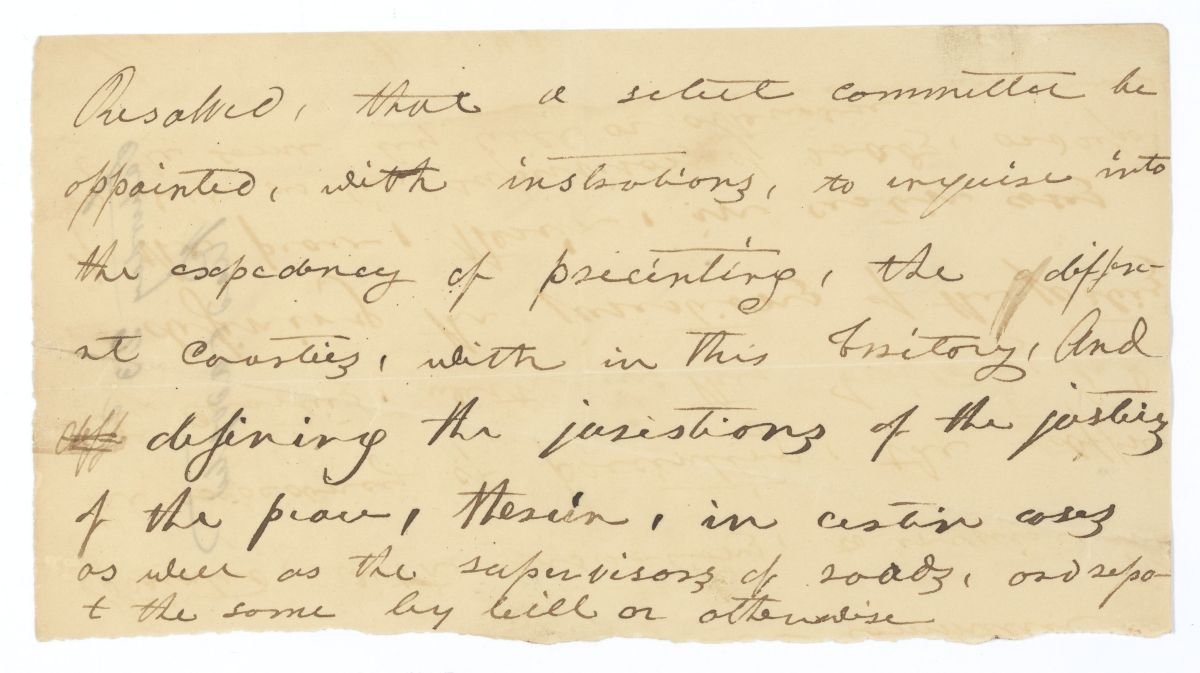 Resolved, that a select committee be
appointed, with instrutions, to inquire into
the expedency of precinting, the differe-
nt Counties, with in this Territory, And
defining the juristions of the justies
of the peace, therein, in certin cases
as well as the supervisors of roads, and repo-
t the same by bill or otherwise